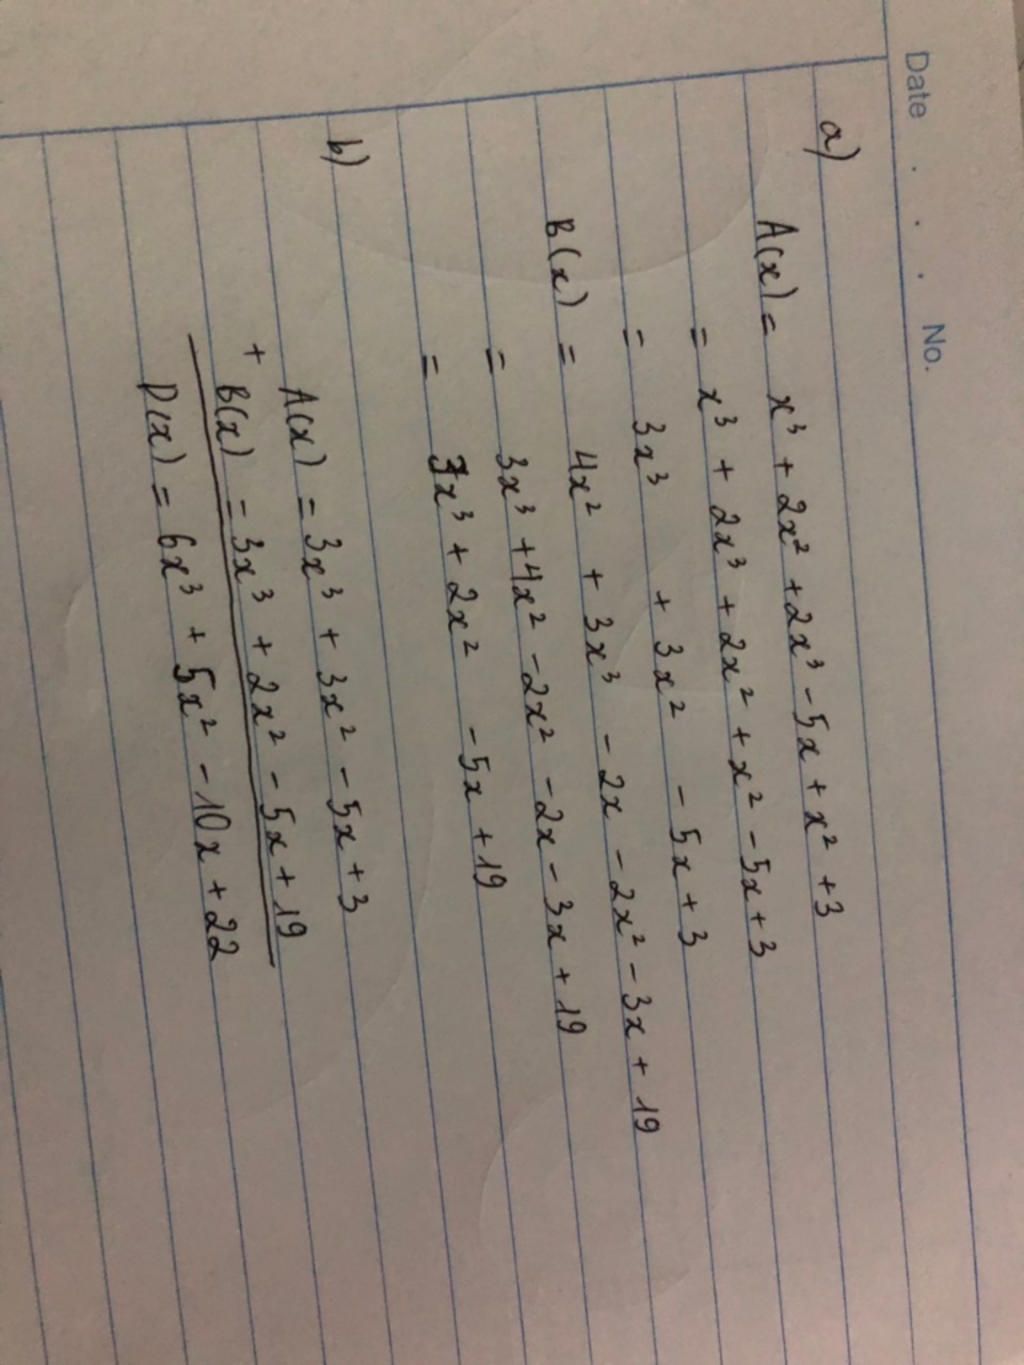 Date . . . No.
a)
A(x) = x³ + 2x² + 2x³ - 5x + x² + 3
= x³ + 2x³ + 2x² + x² - 5x + 3
= 3x³ + 3x² - 5x + 3
B(x) = 4x² + 3x³ - 2x - 2x² - 3x + 19
= 3x³ + 4x² - 2x² - 2x - 3x + 19
= 3x³ + 2x² - 5x + 19
b)
A(x) = 3x³ + 3x² - 5x + 3
+
B(x) = 3x³ + 2x² - 5x + 19
D(x) = 6x³ + 5x² - 10x + 22